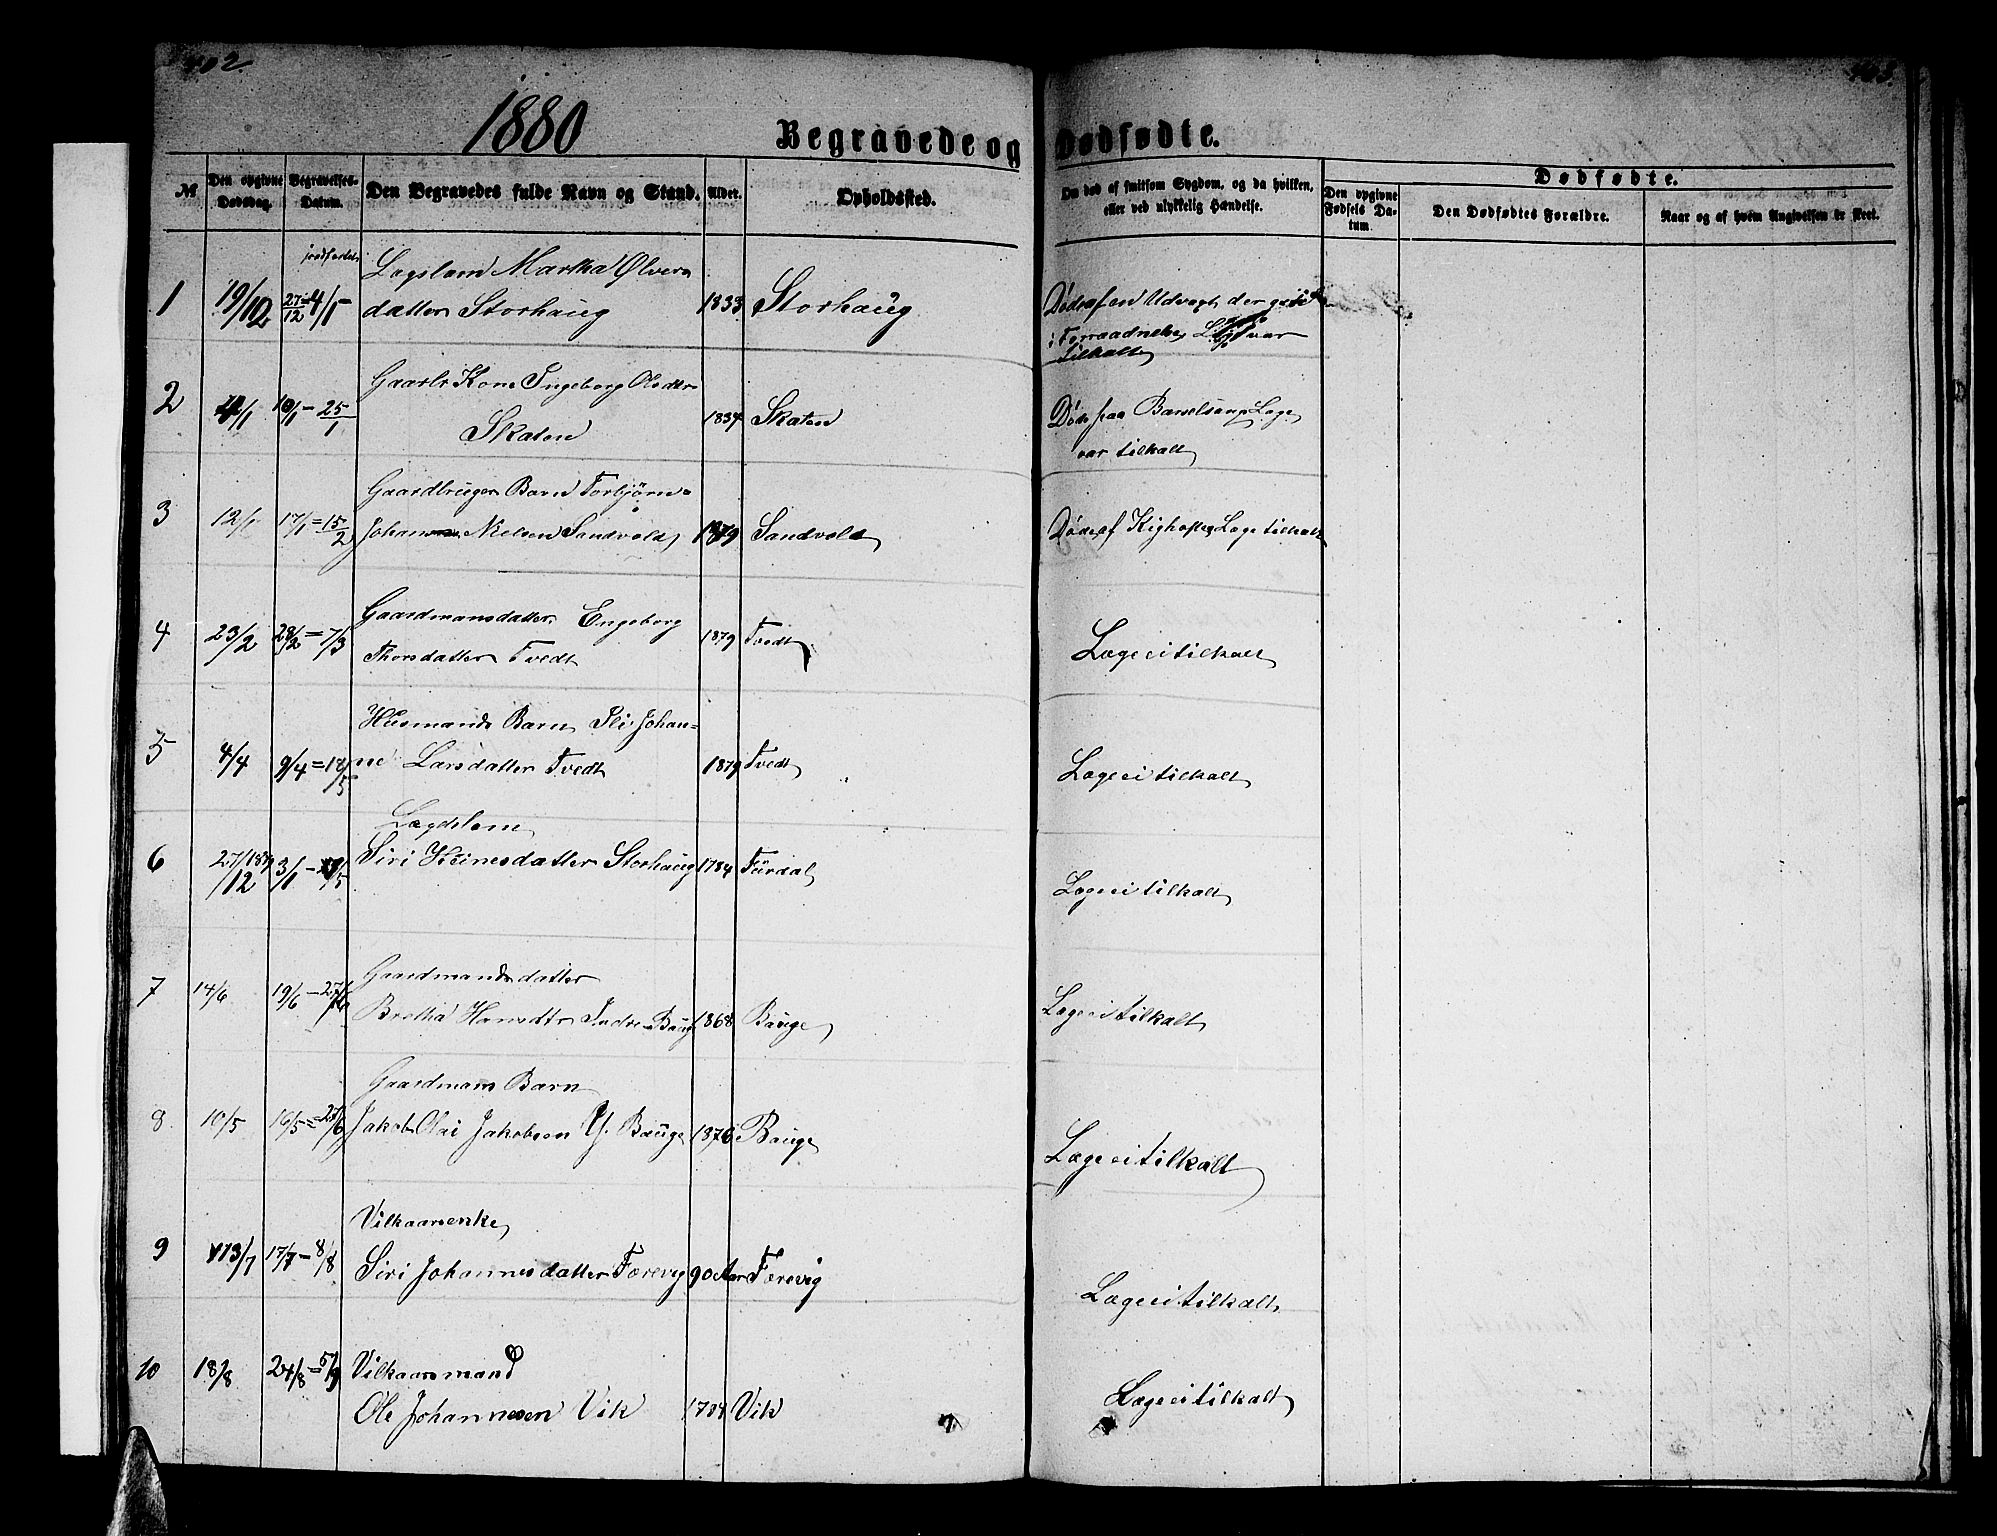 402
403
1880
Begravede og Dødfødte.
№
Den opgivne Dødsdag.
Begravelses-Datum.
Den Begravedes fulde Navn og Stand.
Alder.
Opholdssted.
Om død af smitsom Sygdom, og da hvilken, eller ved ulykkelig Hændelse.
Dødfødte.
Den opgivne Fødsels Datum.
Den Dødfødtes Forældre.
Naar og af hvem Angivelsen er skeet.
jordfæstet
Lægslem Martha Ølvers
1 19/12 27/12=4/1 datter Storhaug 1833 Storhaug
Død af en Udvægt der gik
i Forraadnelse Læge var
tilkalt
Gaarbr Kone Ingeborg Olsdtr
2 4/1 10/1 - 25/1 Skaten 1834 Skaten
Død paa Barselseng Læge
var tilkalt
Gaardbruger Barn Torbjørn
3 12/1 17/1=15/2 Johan Nielsen Sandvold 1879 Sandvold
Død af Kighoste Læge tilkalt
Gaardmansdatter Engeborg
4 23/2 28/2=7/3 Thorsdatter Tvedt 1879 Tvedt
Læge ei tilkalt
Husmands Barn Sli Johan-
5 4/4 9/4= /5 ne Larsdatter Tvedt 1879 Tvedt
Læge ei tilkalt
Lægdslem
6 27/12 1879 3/1 - /5 Siri Heinesdatter Storhaug 1784 Furdal
Læge ei tilkalt
Gaardmands datter
7 14/6 19/6 - 27/6 Bretha Hansdtr Indre Baug 1868 Bauge
Læge ei tilkalt
Gaardmans Barn
8 10/5 16/5=27/6 Jakob Olai Jakobsen Y. Bauge 1876 Bauge
Læge ei tilkalt
Vilkaarsenke
9 13/7 17/7 - 8/8 Siri Johannesdatter Færevig 90 Aar Færevig
Læge ei tilkalt
10 18/8 24/8=5/9 Vilkaarsmand
Ole Johannesen Vik 1784 Vik
Læge ei tilkalt